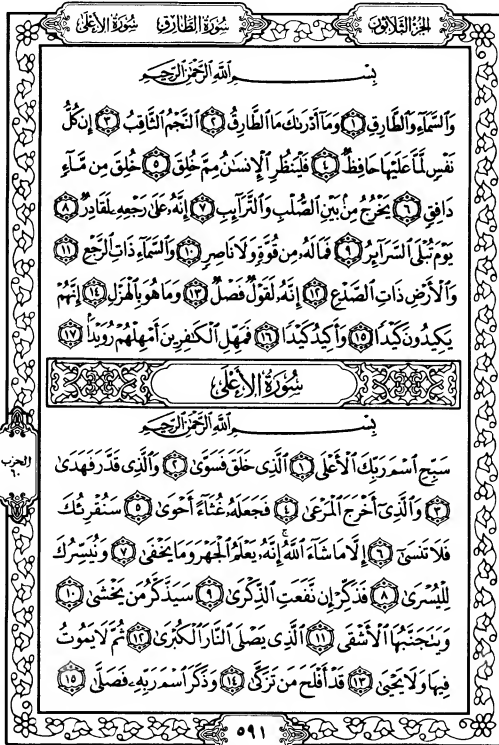 سُورَةُ الأَعْلَىٰ سُورَةُ الطَّارِقِ الجُزْءُ الثَّلَاثُونَ
بِسْمِ ٱللَّهِ ٱلرَّحْمَٰنِ ٱلرَّحِيمِ
وَٱلسَّمَآءِ وَٱلطَّارِقِ ١ وَمَآ أَدْرَىٰكَ مَا ٱلطَّارِقُ ٢ ٱلنَّجْمُ ٱلثَّاقِبُ ٣ إِن كُلُّ
نَفْسٍ لَّمَّا عَلَيْهَا حَافِظٌ ٤ فَلْيَنظُرِ ٱلْإِنسَٰنُ مِمَّ خُلِقَ ٥ خُلِقَ مِن مَّآءٍ
دَافِقٍ ٦ يَخْرُجُ مِنۢ بَيْنِ ٱلصُّلْبِ وَٱلتَّرَآئِبِ ٧ إِنَّهُۥ عَلَىٰ رَجْعِهِۦ لَقَادِرٌ ٨
يَوْمَ تُبْلَى ٱلسَّرَآئِرُ ٩ فَمَا لَهُۥ مِن قُوَّةٍ وَلَا نَاصِرٍ ١٠ وَٱلسَّمَآءِ ذَاتِ ٱلرَّجْعِ ١١
وَٱلْأَرْضِ ذَاتِ ٱلصَّدْعِ ١٢ إِنَّهُۥ لَقَوْلٌ فَصْلٌ ١٣ وَمَا هُوَ بِٱلْهَزْلِ ١٤ إِنَّهُمْ
يَكِيدُونَ كَيْدًا ١٥ وَأَكِيدُ كَيْدًا ١٦ فَمَهِّلِ ٱلْكَٰفِرِينَ أَمْهِلْهُمْ رُوَيْدًۢا ١٧
سُورَةُ الأَعْلَىٰ
بِسْمِ ٱللَّهِ ٱلرَّحْمَٰنِ ٱلرَّحِيمِ
سَبِّحِ ٱسْمَ رَبِّكَ ٱلْأَعْلَى ١ ٱلَّذِى خَلَقَ فَسَوَّىٰ ٢ وَٱلَّذِى قَدَّرَ فَهَدَىٰ
٣ وَٱلَّذِىٓ أَخْرَجَ ٱلْمَرْعَىٰ ٤ فَجَعَلَهُۥ غُثَآءً أَحْوَىٰ ٥ سَنُقْرِئُكَ
فَلَا تَنسَىٰٓ ٦ إِلَّا مَا شَآءَ ٱللَّهُ ۚ إِنَّهُۥ يَعْلَمُ ٱلْجَهْرَ وَمَا يَخْفَىٰ ٧ وَنُيَسِّرُكَ
لِلْيُسْرَىٰ ٨ فَذَكِّرْ إِن نَّفَعَتِ ٱلذِّكْرَىٰ ٩ سَيَذَّكَّرُ مَن يَخْشَىٰ ١٠
وَيَتَجَنَّبُهَا ٱلْأَشْقَى ١١ ٱلَّذِى يَصْلَى ٱلنَّارَ ٱلْكُبْرَىٰ ١٢ ثُمَّ لَا يَمُوتُ
فِيهَا وَلَا يَحْيَىٰ ١٣ قَدْ أَفْلَحَ مَن تَزَكَّىٰ ١٤ وَذَكَرَ ٱسْمَ رَبِّهِۦ فَصَلَّىٰ ١٥
الحزب
٦٠
٥٩١